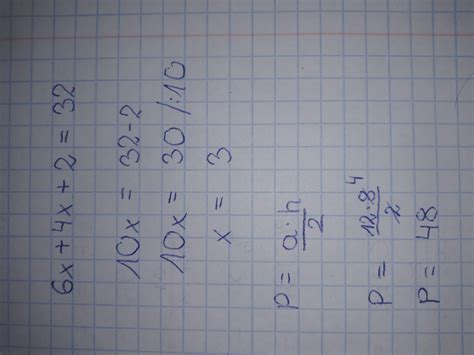 6x + 4x + 2 = 32
10x = 32-2
10x = 30 /:10
x = 3
P = a·h/2
P = 12·8⁴/2
P = 48